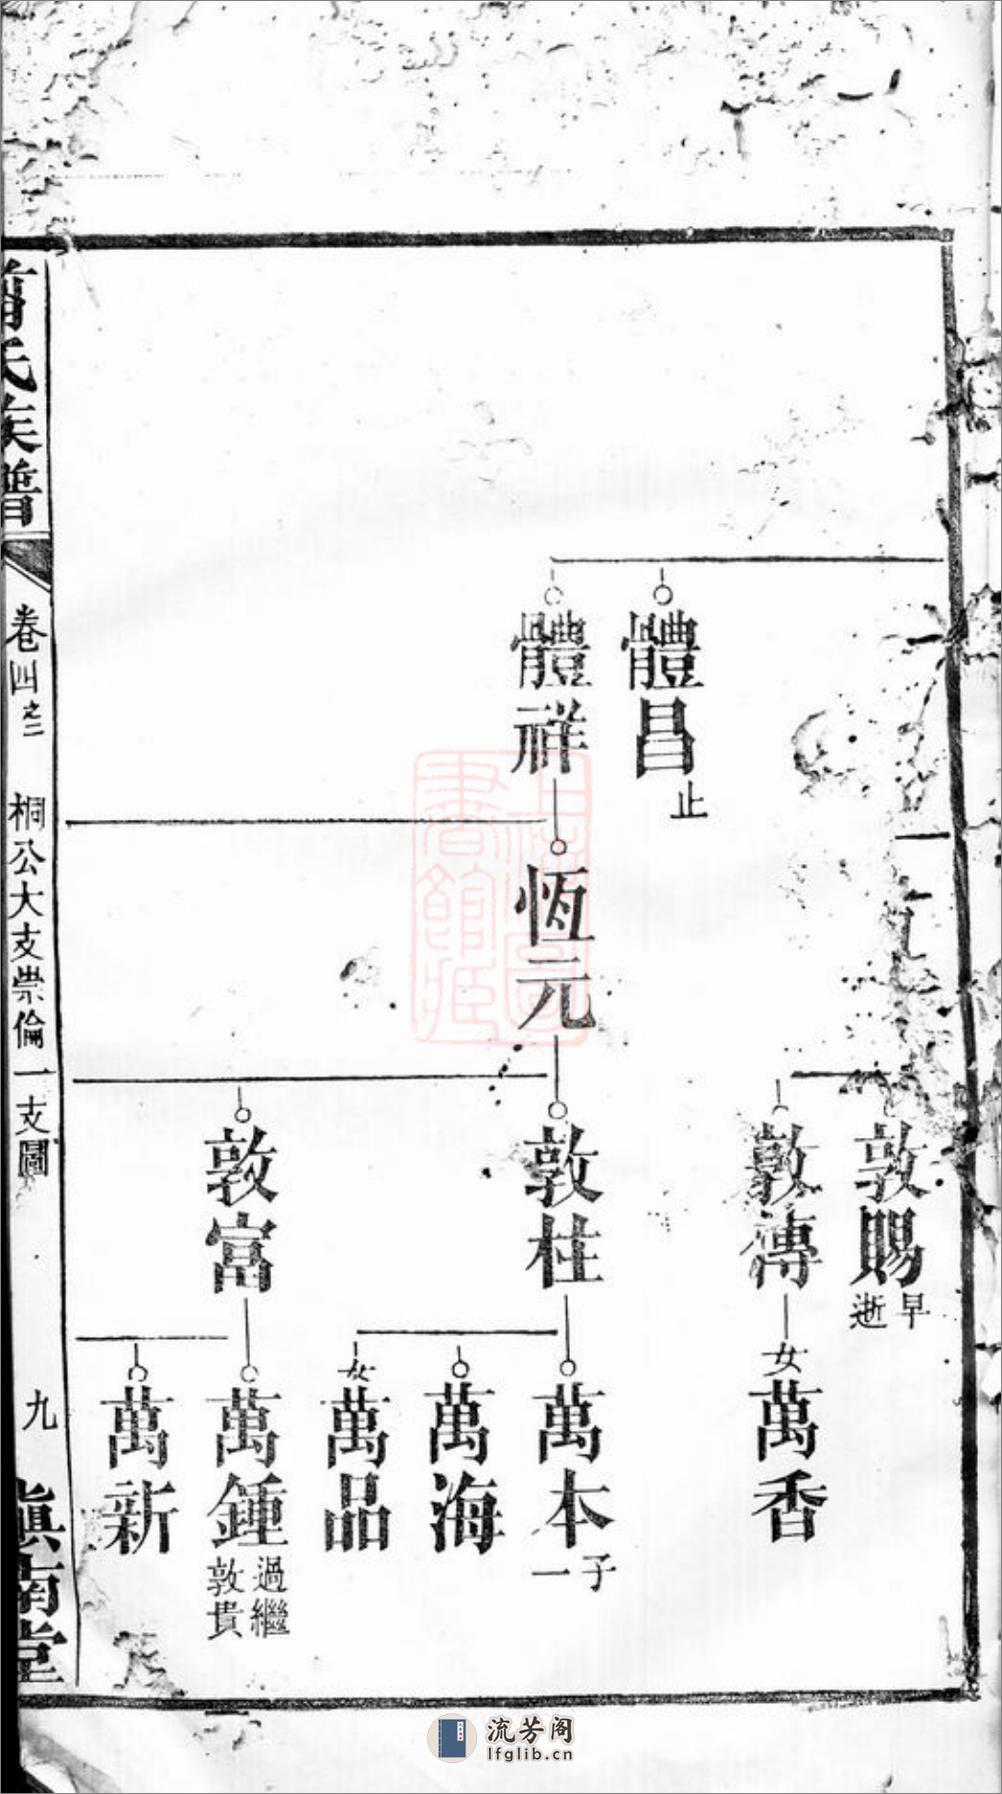 體昌
止
體祥
恆元
敦賜
早
逝
敦傳
女
萬香
敦柱
萬本
子
一
萬海
女
萬品
敦富
萬鍾
過繼
敦貴
萬新
氏族譜
卷四之二
桐公大支崇倫一支圖
九
南堂
上海圖書館藏
流芳阁
lfglib.cn